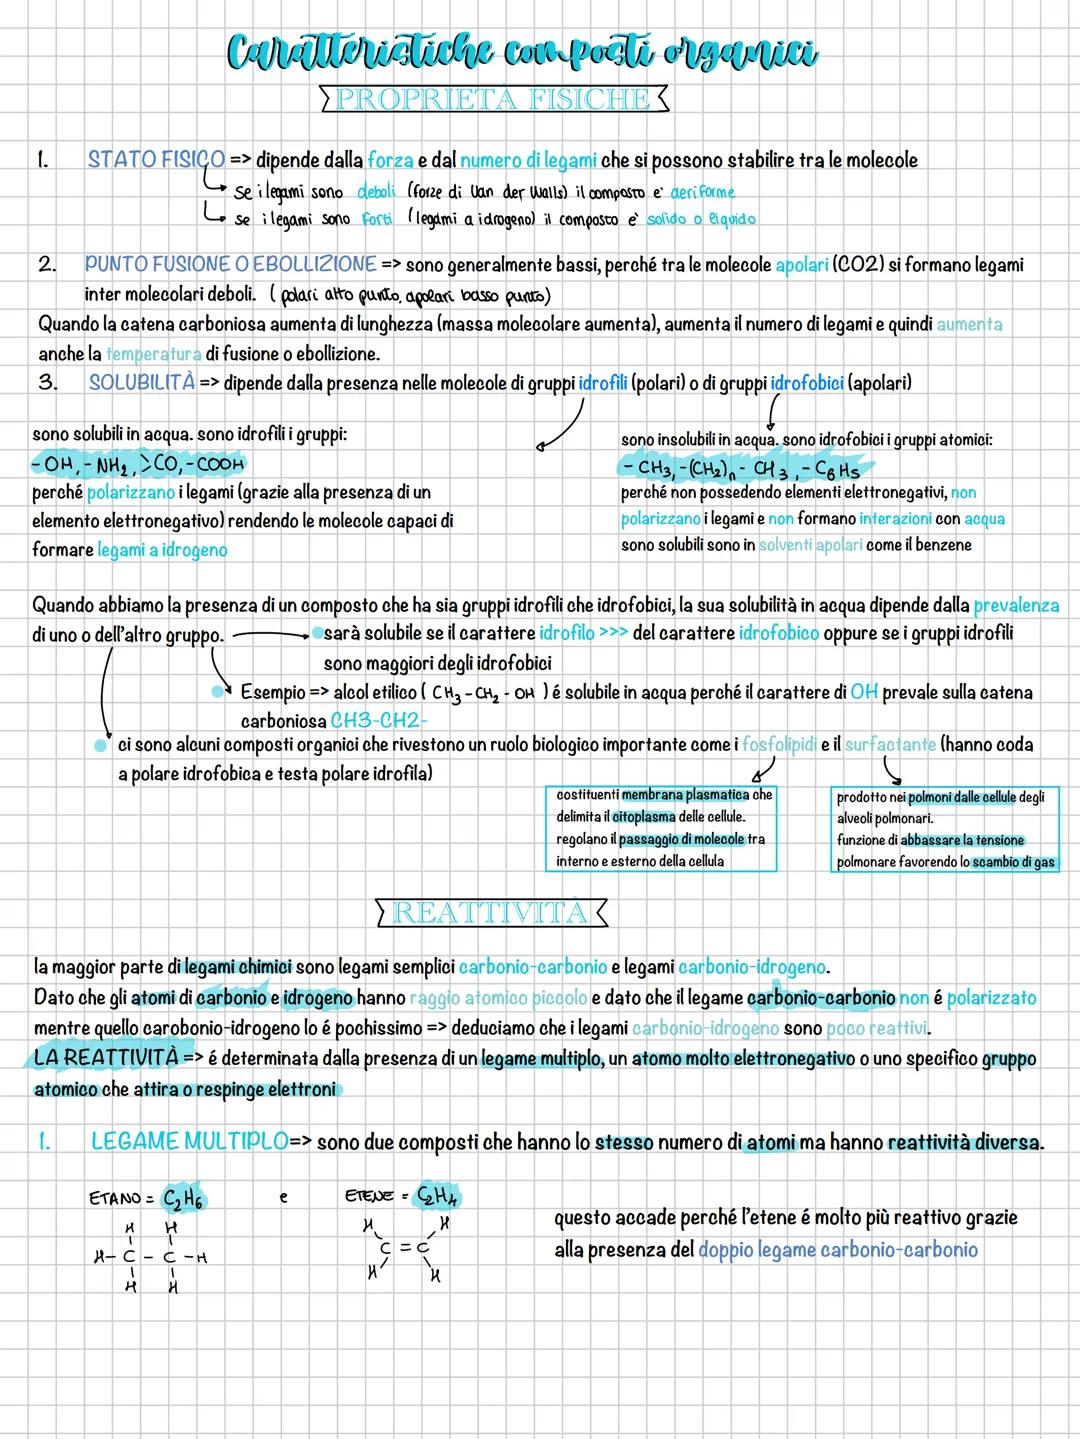 Caratteristiche composti organici
PROPRIETÀ FISICHE
1. STATO FISICO => dipende dalla forza e dal numero di legami che si possono stabilire tra le molecole
se i legami sono deboli (forze di Van der Walls) il composto e' aeriforme
se i legami sono forti (legami a idrogeno) il composto e' solido o liquido
2. PUNTO FUSIONE O EBOLLIZIONE => sono generalmente bassi, perché tra le molecole apolari (CO2) si formano legami
inter molecolari deboli. (polari alto punto, apolari basso punto)
Quando la catena carboniosa aumenta di lunghezza (massa molecolare aumenta), aumenta il numero di legami e quindi aumenta
anche la temperatura di fusione o ebollizione.
3. SOLUBILITÀ => dipende dalla presenza nelle molecole di gruppi idrofili (polari) o di gruppi idrofobici (apolari)
sono solubili in acqua. sono idrofili i gruppi:
-OH, -NH₂, >CO, -COOH
perché polarizzano i legami (grazie alla presenza di un
elemento elettronegativo) rendendo le molecole capaci di
formare legami a idrogeno
sono insolubili in acqua. sono idrofobici i gruppi atomici:
-CH₃, -(CH₂)ₙ-CH₃, -C₆H₅
perché non possedendo elementi elettronegativi, non
polarizzano i legami e non formano interazioni con acqua
sono solubili sono in solventi apolari come il benzene
Quando abbiamo la presenza di un composto che ha sia gruppi idrofili che idrofobici, la sua solubilità in acqua dipende dalla prevalenza
di uno o dell'altro gruppo.
sarà solubile se il carattere idrofilo >>> del carattere idrofobico oppure se i gruppi idrofili
sono maggiori degli idrofobici
Esempio => alcol etilico ( CH₃-CH₂-OH ) é solubile in acqua perché il carattere di OH prevale sulla catena
carboniosa CH3-CH2-
ci sono alcuni composti organici che rivestono un ruolo biologico importante come i fosfolipidi e il surfactante (hanno coda
a polare idrofobica e testa polare idrofila)
costituenti membrana plasmatica che
delimita il citoplasma delle cellule.
regolano il passaggio di molecole tra
interno e esterno della cellula
prodotto nei polmoni dalle cellule degli
alveoli polmonari.
funzione di abbassare la tensione
polmonare favorendo lo scambio di gas
REATTIVITÀ
la maggior parte di legami chimici sono legami semplici carbonio-carbonio e legami carbonio-idrogeno.
Dato che gli atomi di carbonio e idrogeno hanno raggio atomico piccolo e dato che il legame carbonio-carbonio non é polarizzato
mentre quello carobonio-idrogeno lo é pochissimo => deduciamo che i legami carbonio-idrogeno sono poco reattivi.
LA REATTIVITÀ => é determinata dalla presenza di un legame multiplo, un atomo molto elettronegativo o uno specifico gruppo
atomico che attira o respinge elettroni
1. LEGAME MULTIPLO=> sono due composti che hanno lo stesso numero di atomi ma hanno reattività diversa.
ETANO = C₂H₆ e ETENE = C₂H₄
H H
H-C-C-H
H H
H H
C=C
H H
questo accade perché l'etene é molto più reattivo grazie
alla presenza del doppio legame carbonio-carbonio